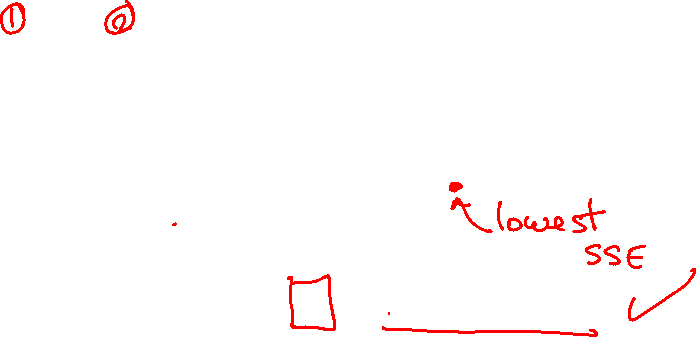 ① ②
lowest
SSE